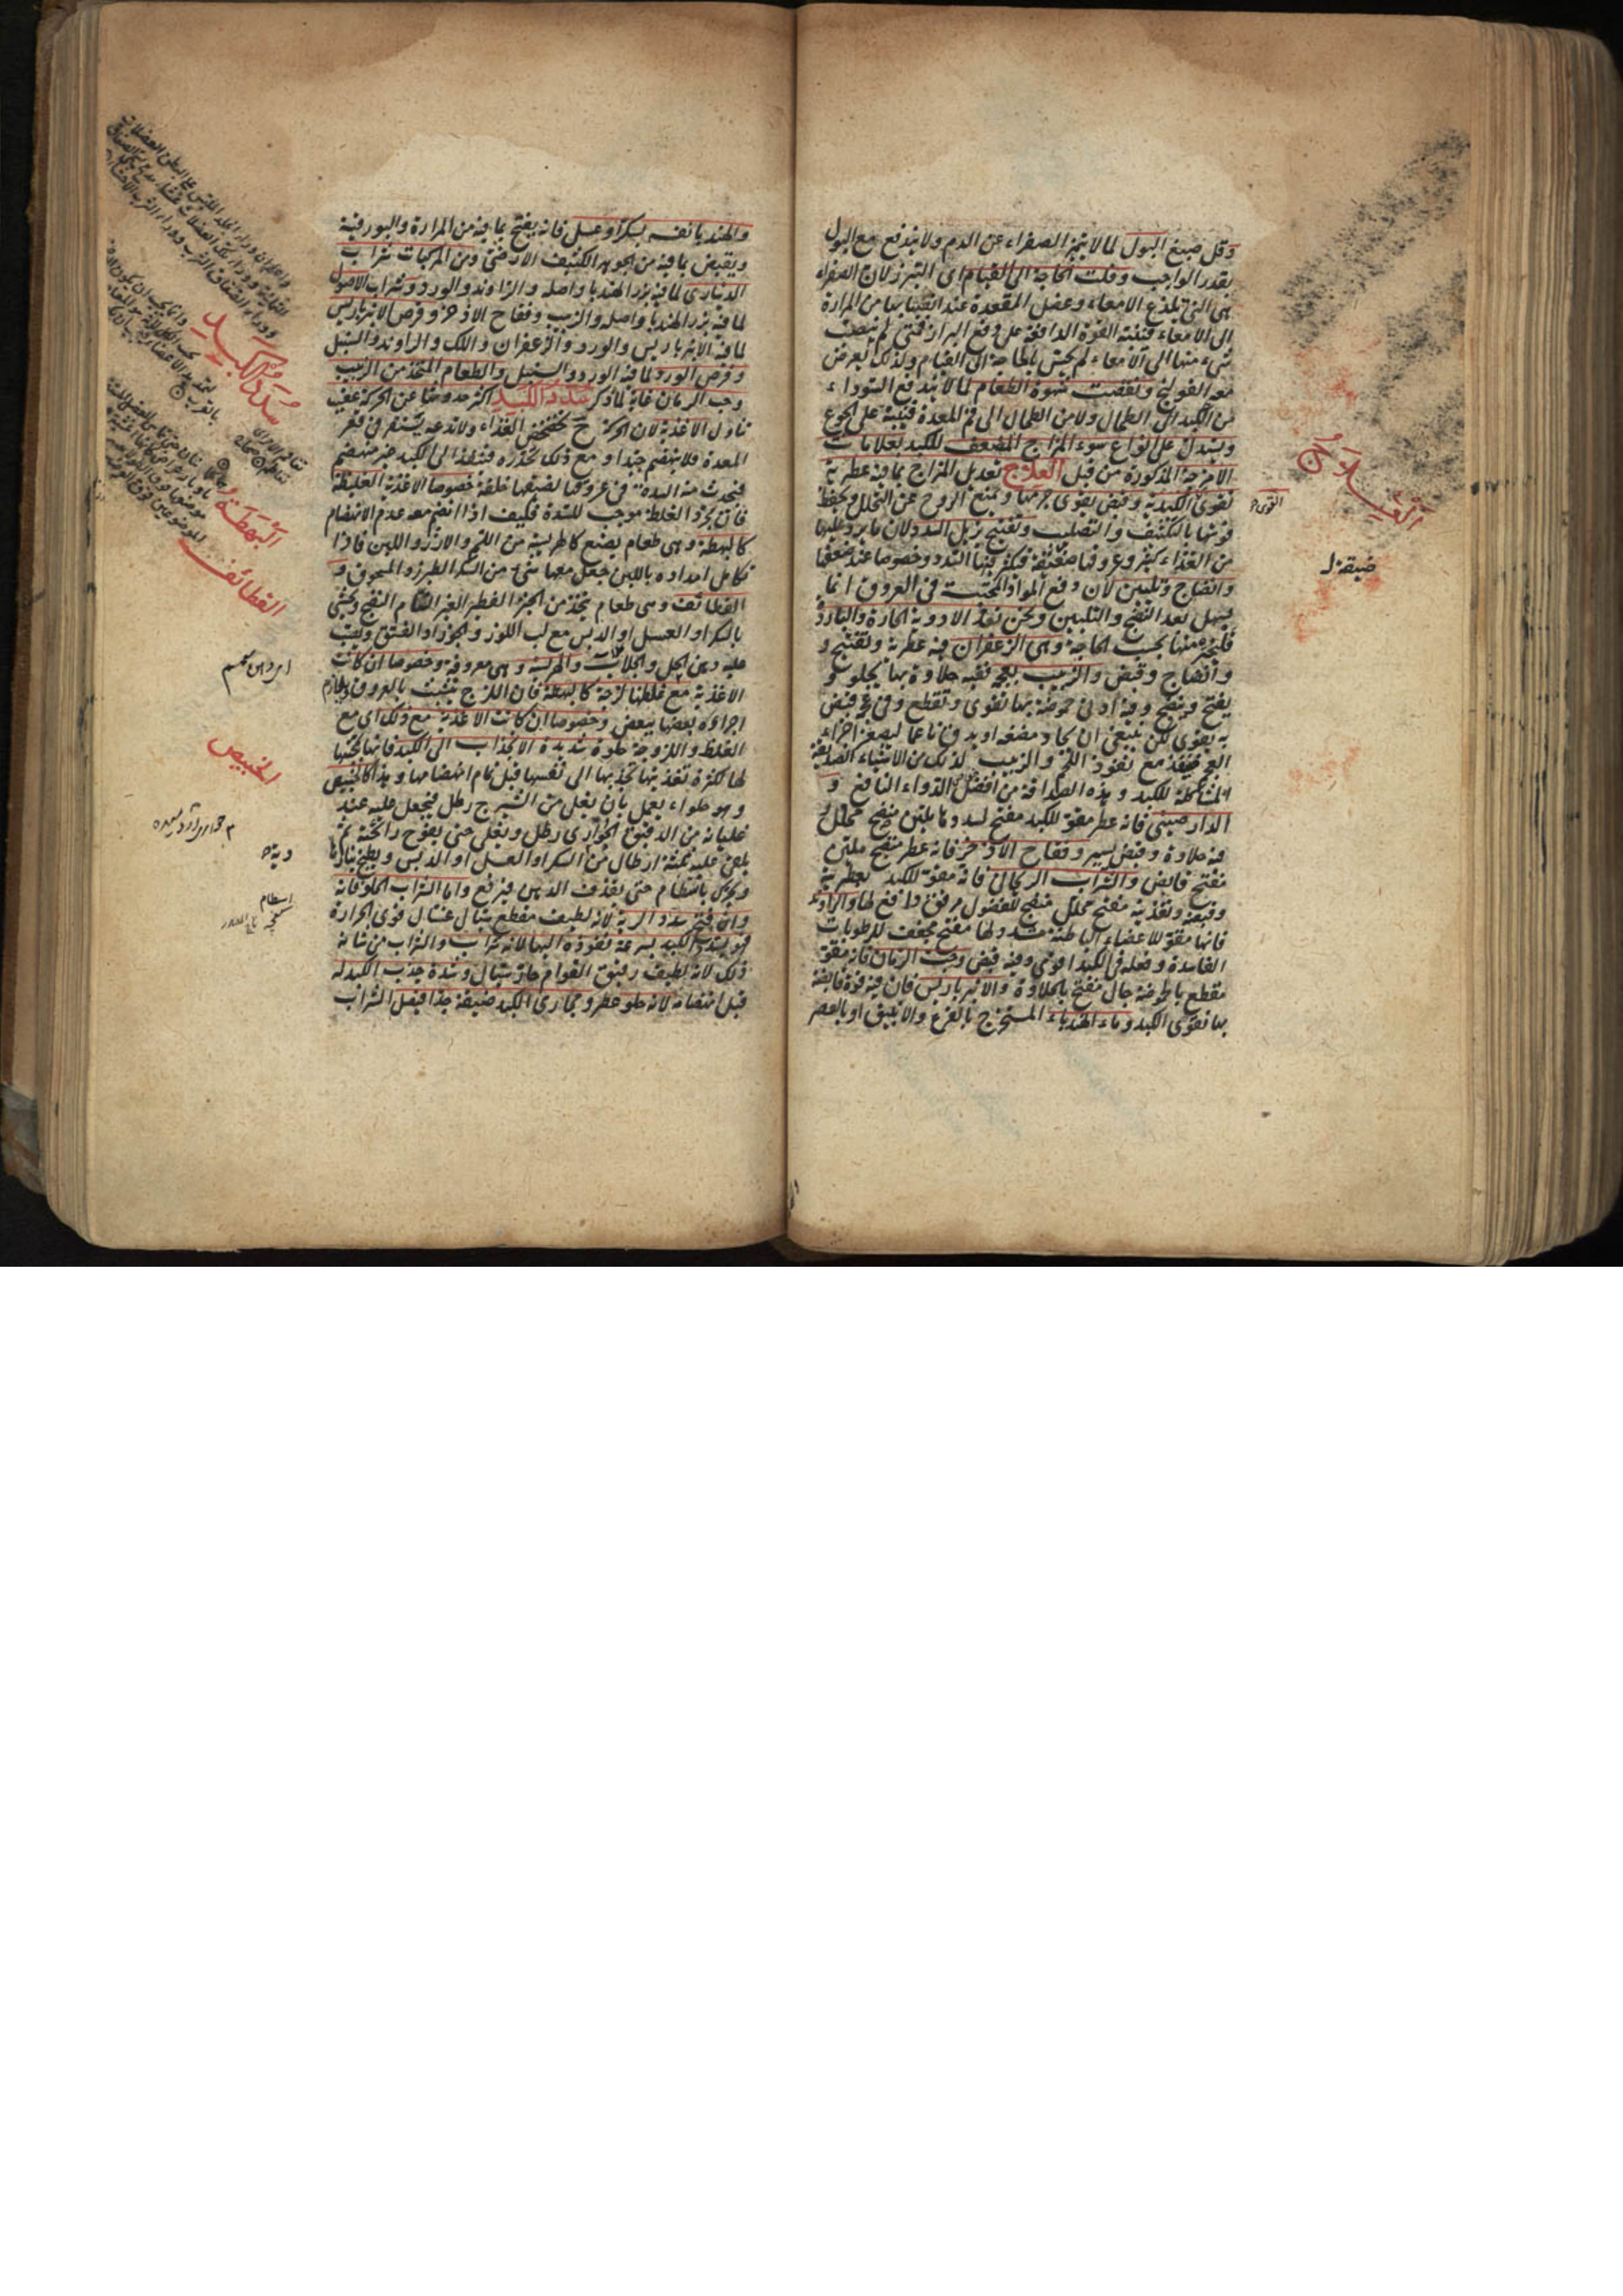 وقل صبغ البول لما لا يتميز الصفراء عن الدم ولا يندفع مع البول
بقدر الواجب وقلت الحاجة الى القيام اى التبرز لان الصفراء
هى التى تلذع الامعاء وعضل المقعدة عند انصبابها من المرارة
الى الامعاء فتنبه القوة الدافعة على دفع البراز فمتى لم ينصب
شىء منها الى الامعاء لم يحس بالحاجة الى القيام ولذلك يعرض
معه القولنج ونقصت شهوة الطعام لما لا يندفع السوداء
من الكبد الى الطحال ولا من الطحال الى فم المعدة فينبه على الجوع
ويستدل على انواع سوء المزاج المضعف للكبد بعلامات
الامزجة المذكورة من قبل العلاج تعديل المزاج بما فيه عطرية
تقوى الكبد وقبض يقوى جرمها ويمنع الروح عن التحلل ويحفظ
قوتها بالتكثيف والتصليب وتفتيح يزيل السدد لان ما يرد عليها
من الغذاء كثير وعروقها ضيقة فتكثر فيها السدد وخصوصا عند ضعفها
وانضاج وتليين لان دفع المواد المحتبسة فى العروق انما
يسهل بعد النضج والتليين ونحن نعد الادوية الحارة والباردة
فلتختر منها بحسب الحاجة وهى الزعفران فيه عطرية وتفتيح و
وانضاج وقبض والزبيب بعجمه ففيه حلاوة بها يجلو و
يفتح وينضج وفيه ادنى حموضة بها تقوى وتقطع وفى عجمه قبض
به يقوى لكن ينبغى ان يجاد مضغه او يدق ناعما ليصغر اجزاء
العجم فينفذ مع نفوذ اللحم والزبيب لذلك من الاشياء الصديقة
المشاكلة للكبد وهذه الصداقة من افضل الدواء النافع و
الدارصينى فانه عطر مقو للكبد مفتح لسددها ملين منضج محلل
فيه حلاوة وقبض يسير وفقاح الاذخر فانه عطر منضج ملين
مفتح قابض والشراب الريحانى فانه مقو للكبد بعطرية
وقبضه وتغذية مفتح محلل منضج للفضول مرقق دافع لها والراوند
فانها مقو للاعضاء الباطنة مسدد لها مفتح مجفف للرطوبات
الفاسدة وفعله فى الكبد اقوى وفيه قبض وحب الرمان فانه مقو
مقطع بالحموضة جال مفتح بالحلاوة والانبرباريس فان فيه قوة قابضة
بها تقوى الكبد وماء الهندباء المستخرج بالقرع والانبيق او بالعصر
العلاج
القوى
ضيقة
والهندبا نفسه بسكر او عسل فانه يفتح بما فيه من المرارة والبورقية
ويقبض بما فيه من الجوهر الكثيف الارضى ومن المركبات شراب
الدينارى لما فيه بزر الهندبا واصله والراوند والورد وشراب الاصول
لما فيه بزر الهندبا واصله والزبيب وفقاح الاذخر وقرص الانبرباريس
لما فيه الانبرباريس والورد والزعفران واللك والراوند والسنبل
وقرص الورد لما فيه الورد والسنبل والطعام المتخذ من الزبيب
وحب الرمان غاية لما ذكر سدد الكبد اكثر حدوثها عن الحركة عقيب
تناول الاغذية لان الحركة ح تخضخض الغذاء ولا تدعه يستقر فى قعر
المعدة فلا ينهضم جيدا ومع ذلك تحدره فتنفذ الى الكبد غير منهضم
فيحدث منه السدة فى عروقها لضيقها خلقة خصوصا الاغذية الغليظة
فان مجرد الغلظ موجب للسدة فكيف اذا انضم معه عدم الانهضام
كالبهطة وهى طعام يصنع كالهريسة من اللحم والارز واللبن فاذا
تكامل امداده باللبن جعل معها شىء من السكر الطبرزد المسحوق و
القطائف وهى طعام يتخذ من الخبز الفطير الغير التام النضج ويحشى
بالسكر او العسل او الدبس مع لب اللوز والجوز او الفستق ويصب
عليه دهن الحل والجلاب والهريسة وهى معروفة وخصوصا ان كانت
الاغذية مع غلظها لزجة كالبهطة فان اللزج يتشبث بالعروق ويلازم
اجزاؤه بعضها ببعض وخصوصا ان كانت الاغذية مع ذلك اى مع
الغلظ واللزوجة حلوة شديدة الانجذاب الى الكبد فانها لمحبتها
لها لكثرة تغذيتها تجذبها الى نفسها قبل تمام انهضامها وهذا كالخبيص
وهو حلواء يعمل بان يغلى من الشيرج رطل فيجعل عليه عند
غليانه من الدقيق الحوارى رطل ويغلى حتى يفوح رائحته ثم
يلقى عليه ثلثة ارطال من السكر او العسل او الدبس ويطبخ بنار
ويحرك بانتظام حتى يقذف الدهن فيرفع واما الشراب الحلو فانه
وان فتح سدد الرية لانه لطيف مقطع سيال غسال قوى الحرارة
فهو يسدد الكبد بسرعة نفوذه اليها لانه شراب والشراب من شانه
ذلك لانه لطيف رقيق القوام حار سيال وشدة جذب الكبد له
قبل انهضامه لانه حلو عطر ومجارى الكبد ضيقة جدا فيصل الشراب
سدد الكبد
البهطة
القطائف
الخبيص